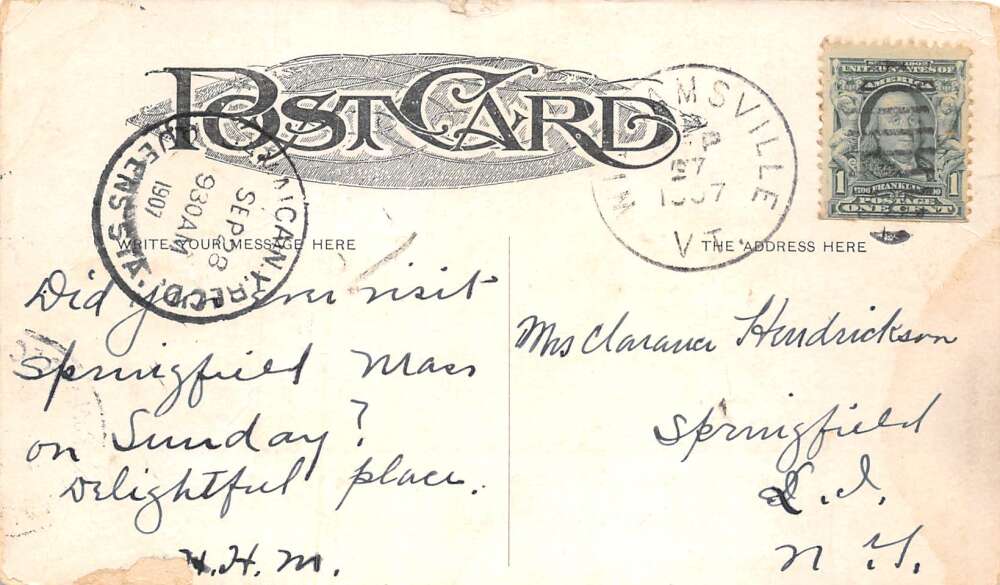 POST CARD
WILLIAMSVILLE
SEP
27
1907
VT.
SERIES 1902
UNITED STATES OF
AMERICA
1 1706 FRANKLIN 1790 1
POSTAGE
ONE CENT
JAMAICA, N.Y. REC'D.
SEP 28
930AM
1907
QUEENS STA.
WRITE YOUR MESSAGE HERE
THE ADDRESS HERE
Did you ever visit
Springfield Mass
on Sunday?
Delightful place.
H.H.M.
Mrs Clarance Hendrickson
Springfield
L.I.
N.Y.